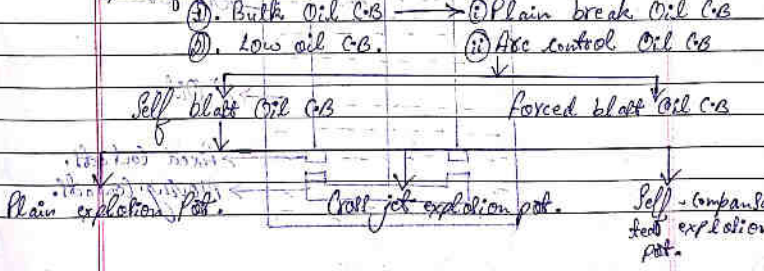 (a). Bulk Oil C.B → (i) Plain break Oil C.B
(b). Low oil C.B. (ii) Arc control Oil C.B
Self blast Oil C.B forced blast Oil C.B
Plain explosion Pot. Cross jet explosion pot. Self-compensa
ted explosion
pot.